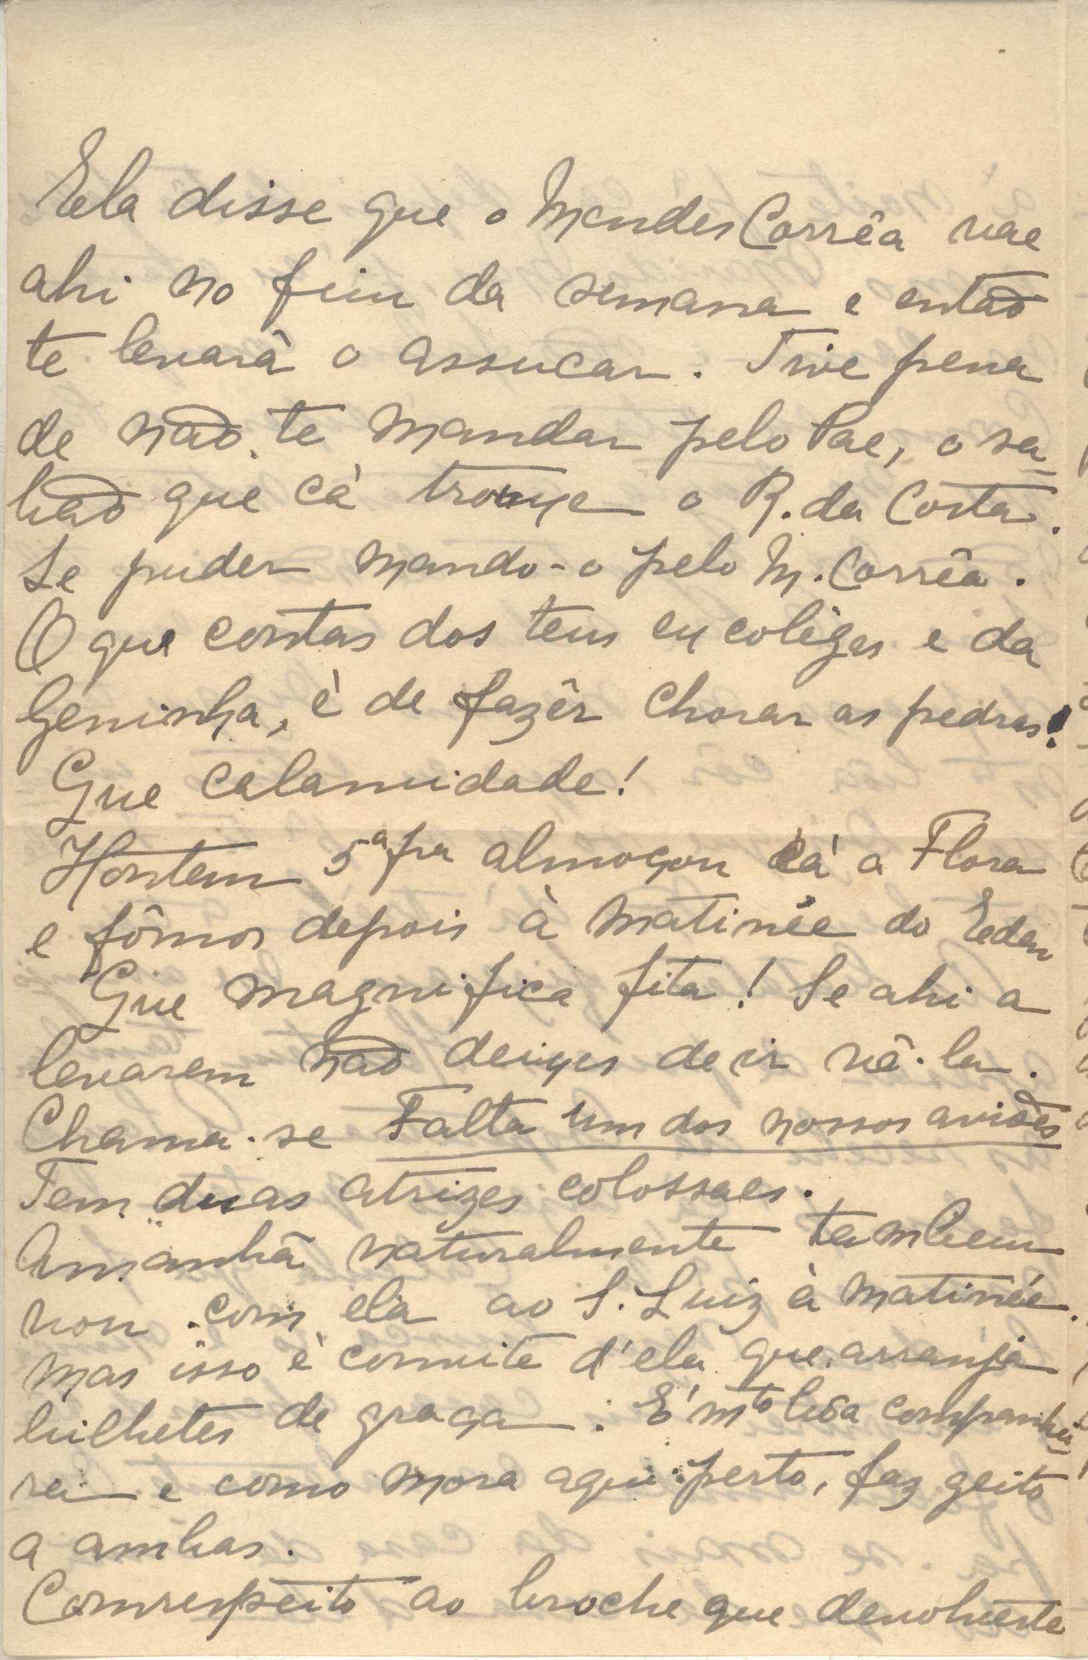 Ela disse que o Mendes Corrêa vae
ahi no fim da semana e então
te levarà o assucar. Tive pena
de não te mandar pelo Pae, o sa-
bão que cà trouxe o R. da Costa.
Se puder mando-o pelo M. Corrêa.
O que contas dos teus ex colégas e da
Geninha, è de fazêr chorar as pedras!
Que calamidade!
Hontem 5ª fra almoçou cá a Flora
e fômos depois à matinée do Eden
Que magnifica fita! Se ahi a
levarem não deixes de ir vê-la.
Chama-se Falta um dos nossos aviões
Tem duas atrizes colossaes.
Amanhã naturalmente tambem
vou com ela ao S. Luiz à matinée.
mas isso è convite d'ela que arranja
bilhetes de graça. É mto bôa companhei-
ra e como mora aqui perto, faz geito
a ambas.
Com respeito ao broche que devolveste